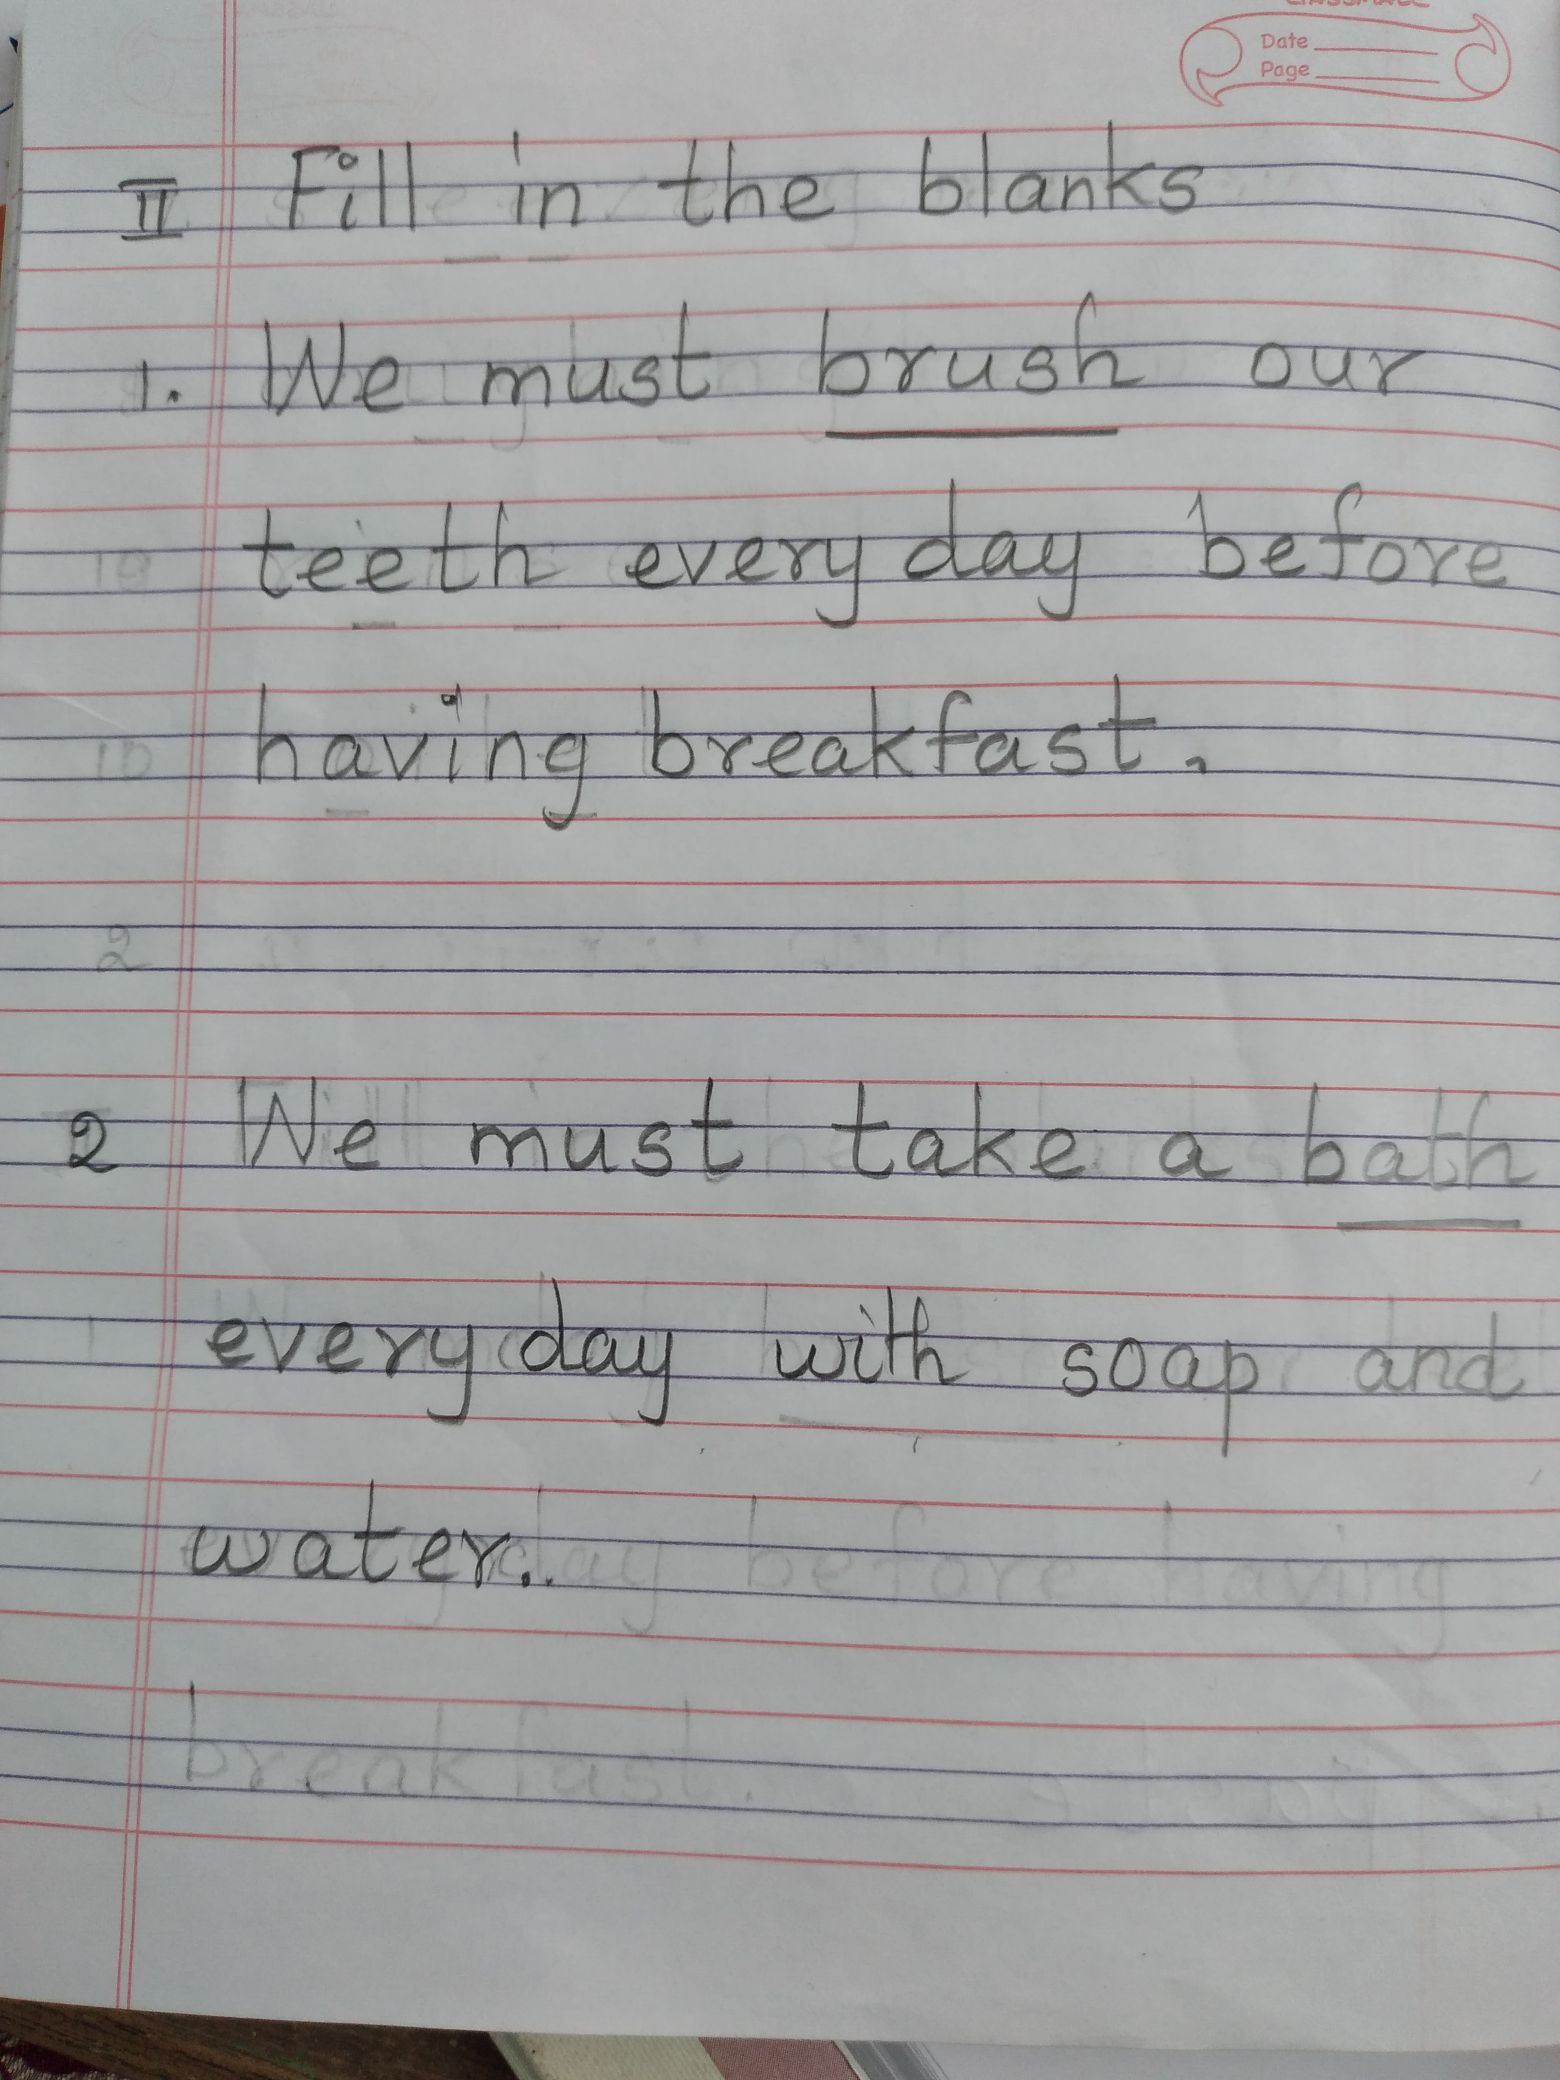 classmate
Date
Page
II Fill in the blanks
1. We must brush our
teeth every day before
having breakfast.
2 We must take a bath
every day with soap and
water..
day before having
breakfast.